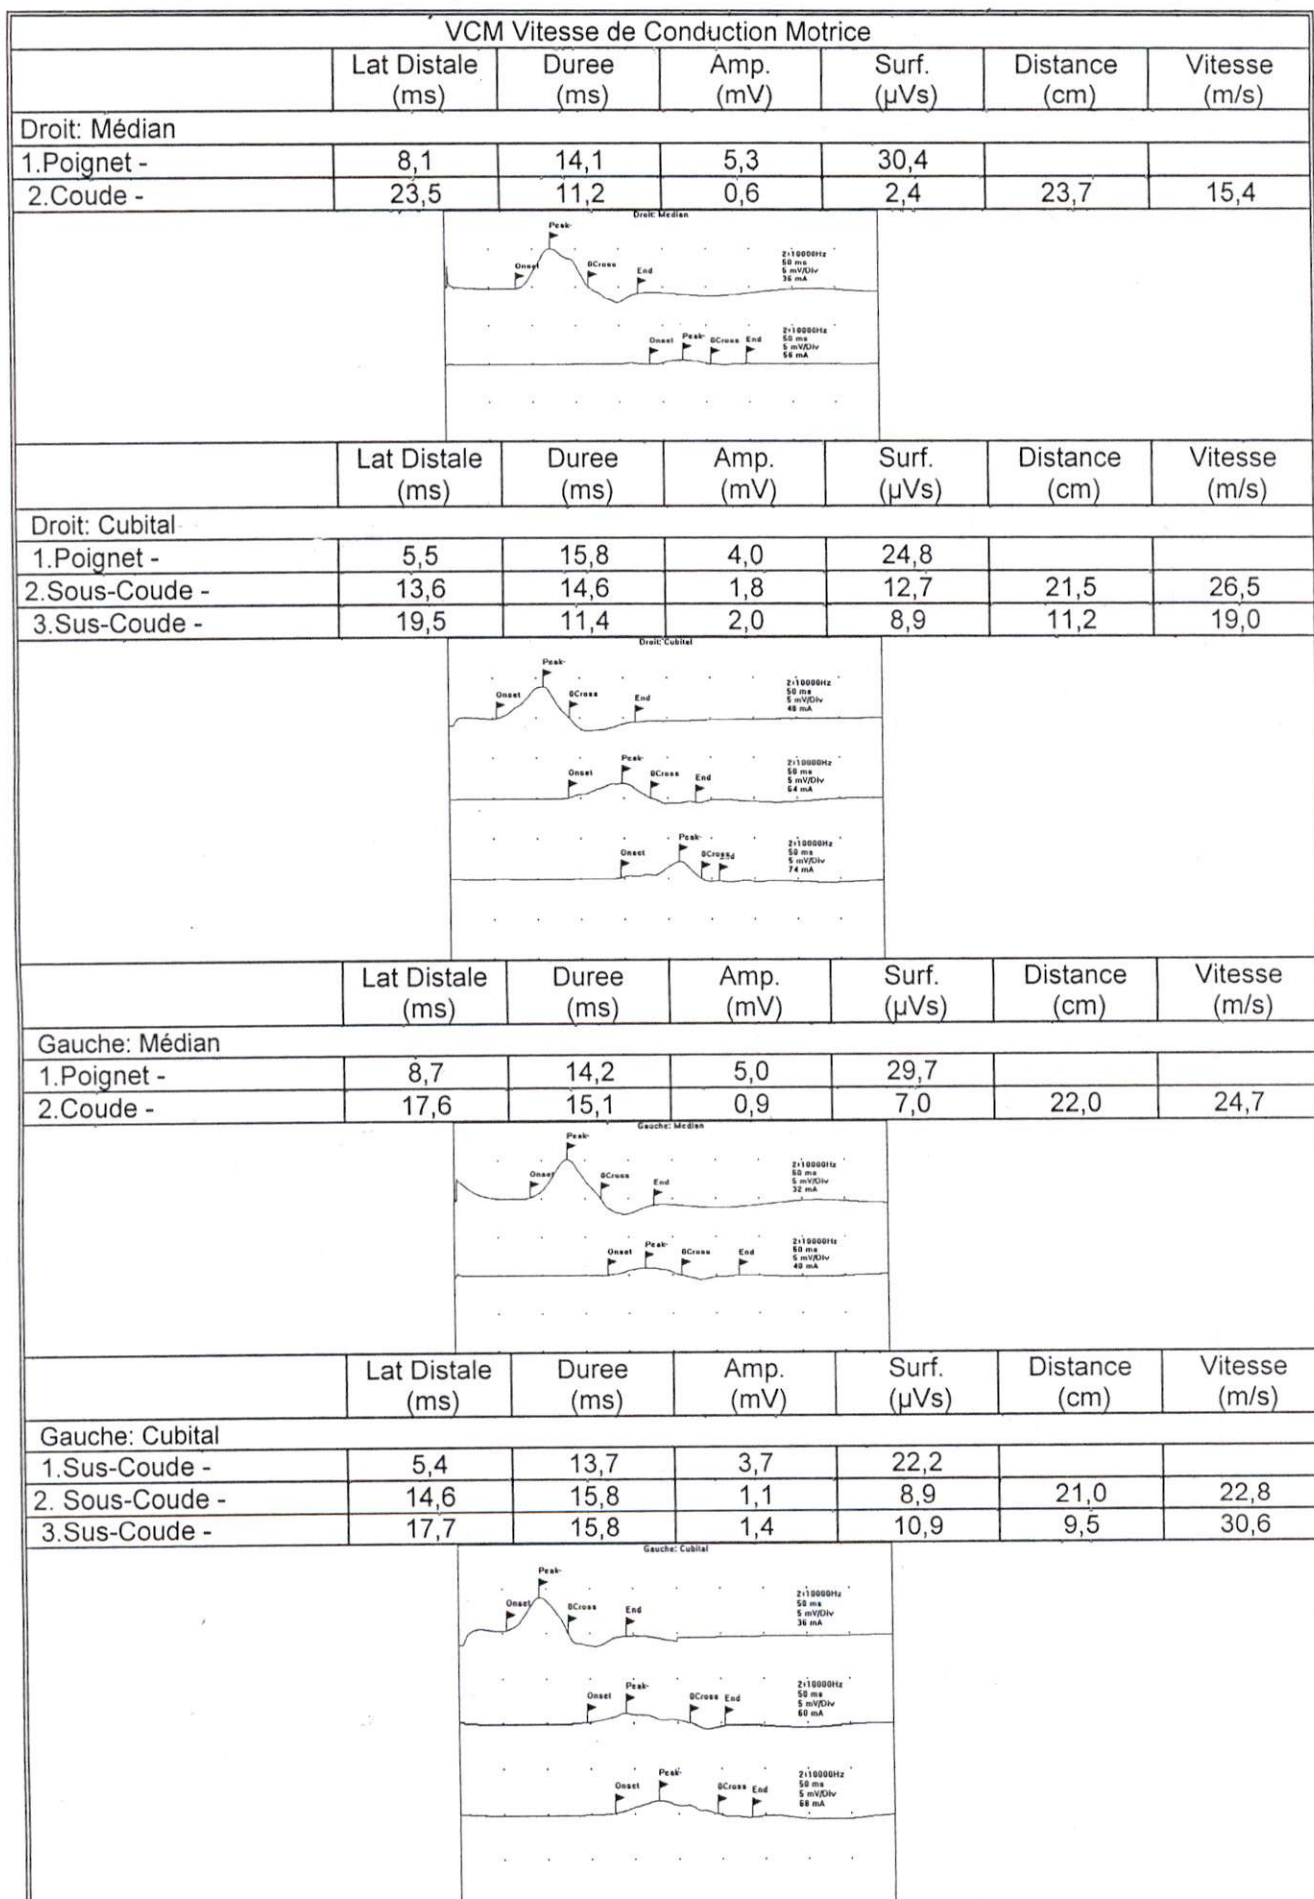 VCM Vitesse de Conduction Motrice
Lat Distale (ms) Duree (ms) Amp. (mV) Surf. (µVs) Distance (cm) Vitesse (m/s)
Droit: Médian
1.Poignet - 8,1 14,1 5,3 30,4
2.Coude - 23,5 11,2 0,6 2,4 23,7 15,4
Droit: Médian
Peak-
Onset 0Cross End
2-10000Hz
50 ms
5 mV/Div
36 mA
Onset Peak- 0Cross End
2-10000Hz
50 ms
5 mV/Div
56 mA
Lat Distale (ms) Duree (ms) Amp. (mV) Surf. (µVs) Distance (cm) Vitesse (m/s)
Droit: Cubital
1.Poignet - 5,5 15,8 4,0 24,8
2.Sous-Coude - 13,6 14,6 1,8 12,7 21,5 26,5
3.Sus-Coude - 19,5 11,4 2,0 8,9 11,2 19,0
Droit: Cubital
Peak-
Onset 0Cross End
2-10000Hz
50 ms
5 mV/Div
48 mA
Peak-
Onset 0Cross End
2-10000Hz
50 ms
5 mV/Div
64 mA
Peak-
Onset 0Cross End
2-10000Hz
50 ms
5 mV/Div
74 mA
Lat Distale (ms) Duree (ms) Amp. (mV) Surf. (µVs) Distance (cm) Vitesse (m/s)
Gauche: Médian
1.Poignet - 8,7 14,2 5,0 29,7
2.Coude - 17,6 15,1 0,9 7,0 22,0 24,7
Gauche: Médian
Peak-
Onset 0Cross End
2-10000Hz
50 ms
5 mV/Div
32 mA
Onset Peak- 0Cross End
2-10000Hz
50 ms
5 mV/Div
40 mA
Lat Distale (ms) Duree (ms) Amp. (mV) Surf. (µVs) Distance (cm) Vitesse (m/s)
Gauche: Cubital
1.Sus-Coude - 5,4 13,7 3,7 22,2
2. Sous-Coude - 14,6 15,8 1,1 8,9 21,0 22,8
3.Sus-Coude - 17,7 15,8 1,4 10,9 9,5 30,6
Gauche: Cubital
Peak-
Onset 0Cross End
2-10000Hz
50 ms
5 mV/Div
36 mA
Peak-
Onset 0Cross End
2-10000Hz
50 ms
5 mV/Div
60 mA
Peak-
Onset 0Cross End
2-10000Hz
50 ms
5 mV/Div
68 mA